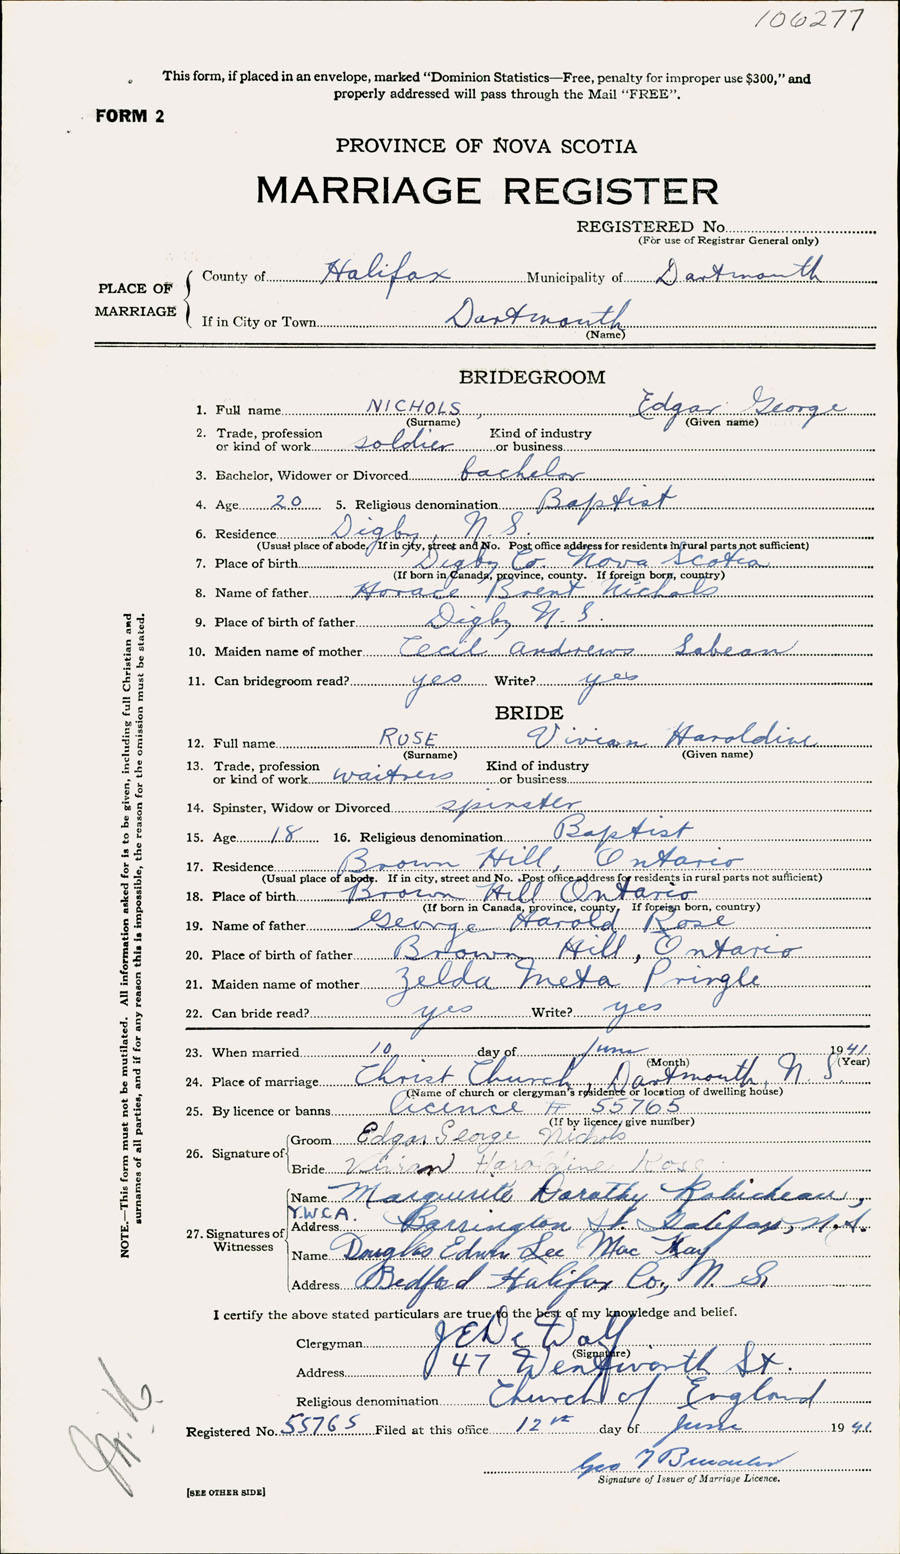 106277
This form, if placed in an envelope, marked “Dominion Statistics—Free, penalty for improper use $300,” and
properly addressed will pass through the Mail “FREE”.
FORM 2
PROVINCE OF NOVA SCOTIA
MARRIAGE REGISTER
REGISTERED No.
(For use of Registrar General only)
PLACE OF MARRIAGE
County of Halifax Municipality of Dartmouth
If in City or Town Dartmouth
(Name)
BRIDEGROOM
1. Full name NICHOLS, Edgar George
(Surname) (Given name)
2. Trade, profession Kind of industry
or kind of work soldier or business
3. Bachelor, Widower or Divorced bachelor
4. Age 20 5. Religious denomination Baptist
6. Residence Digby, N.S.
(Usual place of abode. If in city, street and No. Post office address for residents in rural parts not sufficient)
7. Place of birth Digby Co. Nova Scotia
(If born in Canada, province, county. If foreign born, country)
8. Name of father Horace Brent Nichols
9. Place of birth of father Digby N.S.
10. Maiden name of mother Cecil Andrews Sabean
11. Can bridegroom read? yes Write? yes
BRIDE
12. Full name ROSE Vivian Haroldine
(Surname) (Given name)
13. Trade, profession Kind of industry
or kind of work waitress or business
14. Spinster, Widow or Divorced spinster
15. Age 18 16. Religious denomination Baptist
17. Residence Brown Hill, Ontario
(Usual place of abode. If in city, street and No. Post office address for residents in rural parts not sufficient)
18. Place of birth Brown Hill Ontario
(If born in Canada, province, county. If foreign born, country)
19. Name of father George Harold Rose
20. Place of birth of father Brown Hill, Ontario
21. Maiden name of mother Zelda Meta Pringle
22. Can bride read? yes Write? yes
23. When married 10 day of June 1941
(Month) (Year)
24. Place of marriage Christ Church, Dartmouth, N.S
(Name of church or clergyman's residence or location of dwelling house)
25. By licence or banns licence # 55765
(If by licence, give number)
26. Signature of
Groom Edgar George Nichols
Bride Vivian Haroldine Rose
27. Signatures of Witnesses
Name Marguerite Dorothy Robicheau,
Y.W.C.A.
Address Barrington St. Halifax, N.S.
Name Douglas Edwin Lee MacKay
Address Bedford Halifax Co., N.S.
I certify the above stated particulars are true to the best of my knowledge and belief.
Clergyman J E De Wolf
(Signature)
Address 47 Wentworth St.
Religious denomination Church of England
Registered No. 55765 Filed at this office 12th day of June 1941.
Geo
Signature of Issuer of Marriage Licence.
[SEE OTHER SIDE]
NOTE.—This form must not be mutilated. All information asked for is to be given, including full Christian and
surnames of all parties, and if for any reason this is impossible, the reason for the omission must be stated.